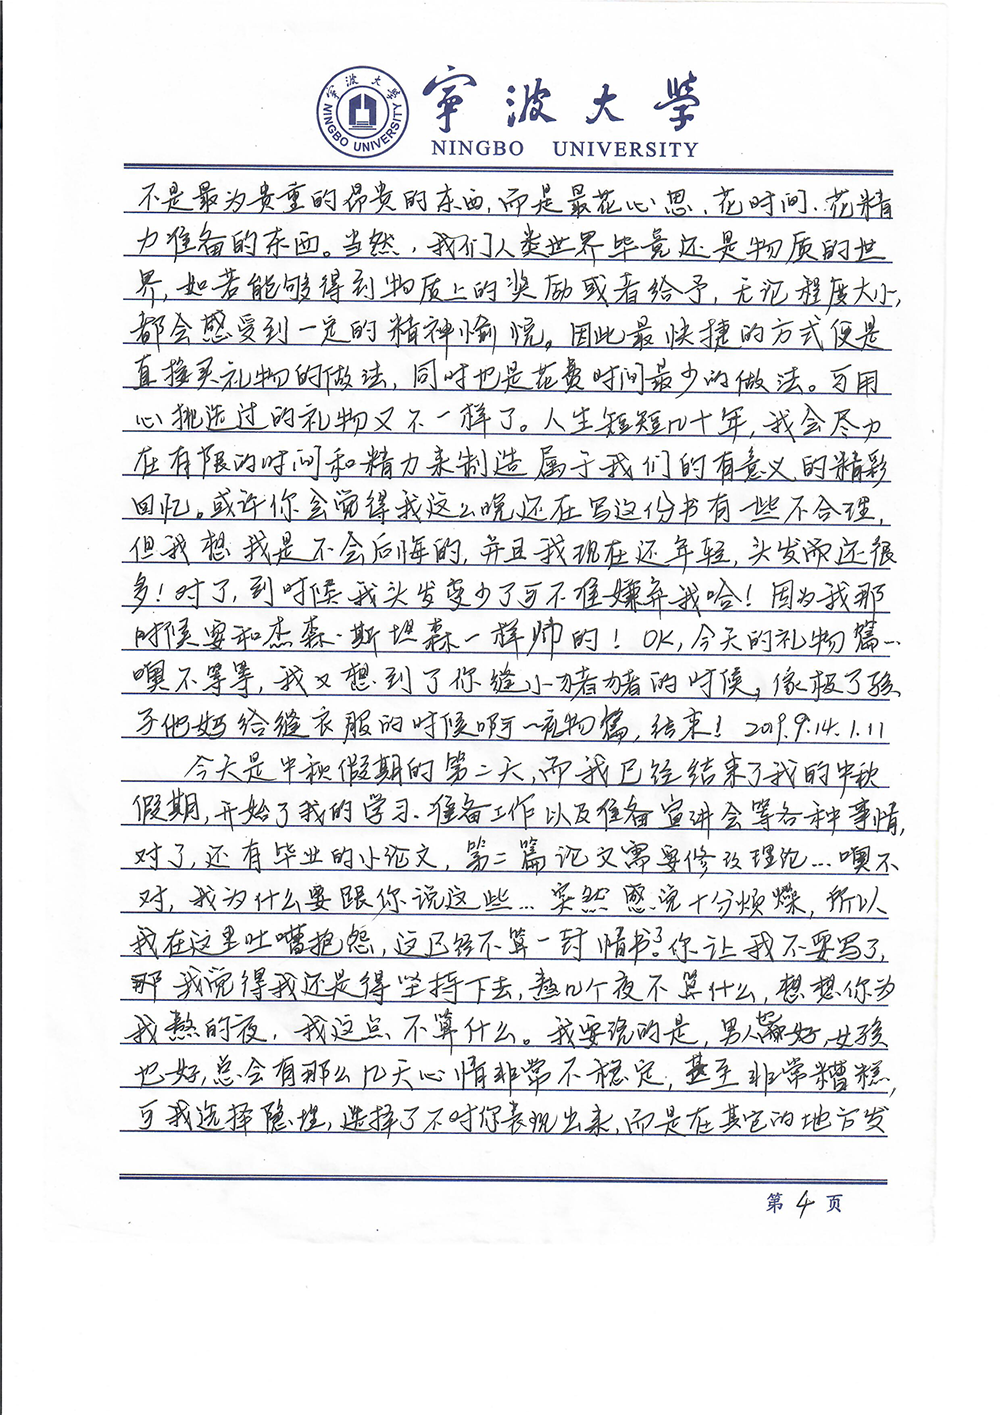 宁波大学
NINGBO UNIVERSITY
宁波大学
NINGBO UNIVERSITY
不是最为贵重的昂贵的东西，而是最花心思、花时间、花精
力准备的东西。当然，我们人类世界毕竟还是物质的世
界，如若能够得到物质上的奖励或者给予，无论程度大小，
都会感受到一定的精神愉悦。因此最快捷的方式便是
直接买礼物的做法，同时也是花费时间最少的做法。可用
心挑选过的礼物又不一样了。人生短短几十年，我会尽力
在有限的时间和精力来制造属于我们的有意义的精彩
回忆。或许你会觉得我这么晚还在写这份书有一些不合理，
但我想我是不会后悔的，并且我现在还年轻，头发而还很
多！对了，到时候我头发变少了可不准嫌弃我哈！因为我那
时候要和杰森·斯坦森一样帅的！OK，今天的礼物篇…
噢不等等，我又想到了你缝小猪猪的时候，像极了孩
子他妈给缝衣服的时候啊—礼物篇，结束！2019.9.14.1.11
今天是中秋假期的第二天，而我已经结束了我的中秋
假期，开始了我的学习、准备工作以及准备宣讲会等各种事情，
对了，还有毕业的小论文，第二篇论文需要修改理论…噢不
对，我为什么要跟你说这些…突然感觉十分烦燥，所以
我在这里吐嘈抱怨，这已经不算一封情书了。你让我不要写了，
那我觉得我还是得坚持下去，熬几个夜不算什么，想想你为
我熬的夜，我这点不算什么。我要说的是，男人也好，女孩
也好，总会有那么几天心情非常不稳定，甚至非常糟糕，
可我选择隐埋，选择了不对你表现出来，而是在其它的地方发
第4页